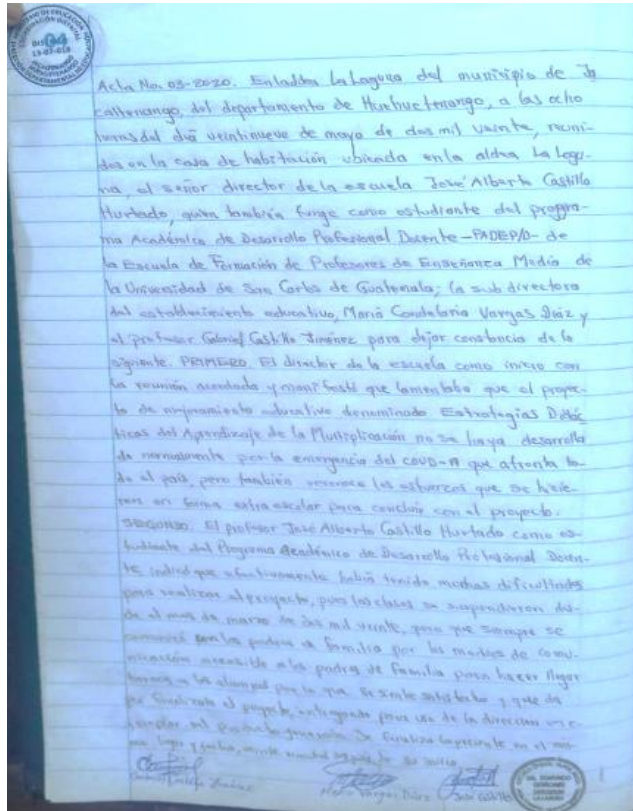 04
Acta No. 03-2020. En la aldea La Laguna del municipio de Ja
caltenango, del departamento de Huehuetenango, a las ocho
horas del día veintinueve de mayo de dos mil veinte, reuni-
dos en la casa de habitación ubicada en la aldea La Lagu-
na, el señor director de la escuela José Alberto Castillo
Hurtado, quien también funge como estudiante del progra-
ma Académico de Desarrollo Profesional Docente -PADEP/D- de
la Escuela de Formación de Profesores de Enseñanza Media de
la Universidad de San Carlos de Guatemala; la sub directora
del establecimiento educativo, María Candelaria Vargas Díaz y
el profesor Gabriel Castillo Jiménez para dejar constancia de lo
siguiente. PRIMERO. El director de la escuela como inicio con
la reunión acordada y manifestó que lamentaba que el proyec-
to de mejoramiento educativo denominado Estrategias Didác
ticas del Aprendizaje de la Multiplicación no se haya desarrolla
do normalmente por la emergencia del COVID-19 que afronta to-
do el país, pero también reconoce los esfuerzos que se hicie-
ron en forma extraescolar para concluir con el proyecto.
SEGUNDO. El profesor José Alberto Castillo Hurtado como es-
tudiante del Programa Académico de Desarrollo Profesional Docen-
te indicó que efectivamente había tenido muchas dificultades
para realizar el proyecto, pues las clases se suspendieron des-
de el mes de marzo de dos mil veinte, pero que siempre se
comunicó con los padres de familia por los medios de comu-
nicación accesible a los padres de familia para hacer llegar
a los alumnos por lo que se siente satisfecho y que da
por finalizado el proyecto, entregando para uso de la dirección un e-
jemplar del Se finaliza la presente en el mis-
mo lugar y fecha, después de su inicio.
María Vargas Díaz José Castillo